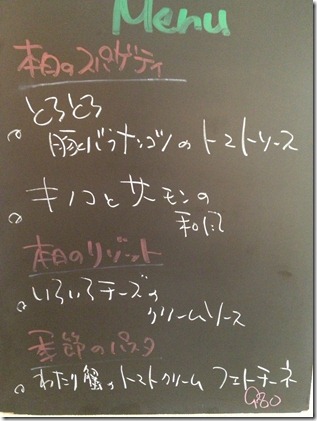 Menu
本日のスパゲティ
とろとろ
豚バラナンコツのトマトソース
キノコとサーモンの
和風
本日のリゾット
いろいろチーズの
クリームソース
季節のパスタ
わたり蟹のトマトクリーム フェトチーネ
980